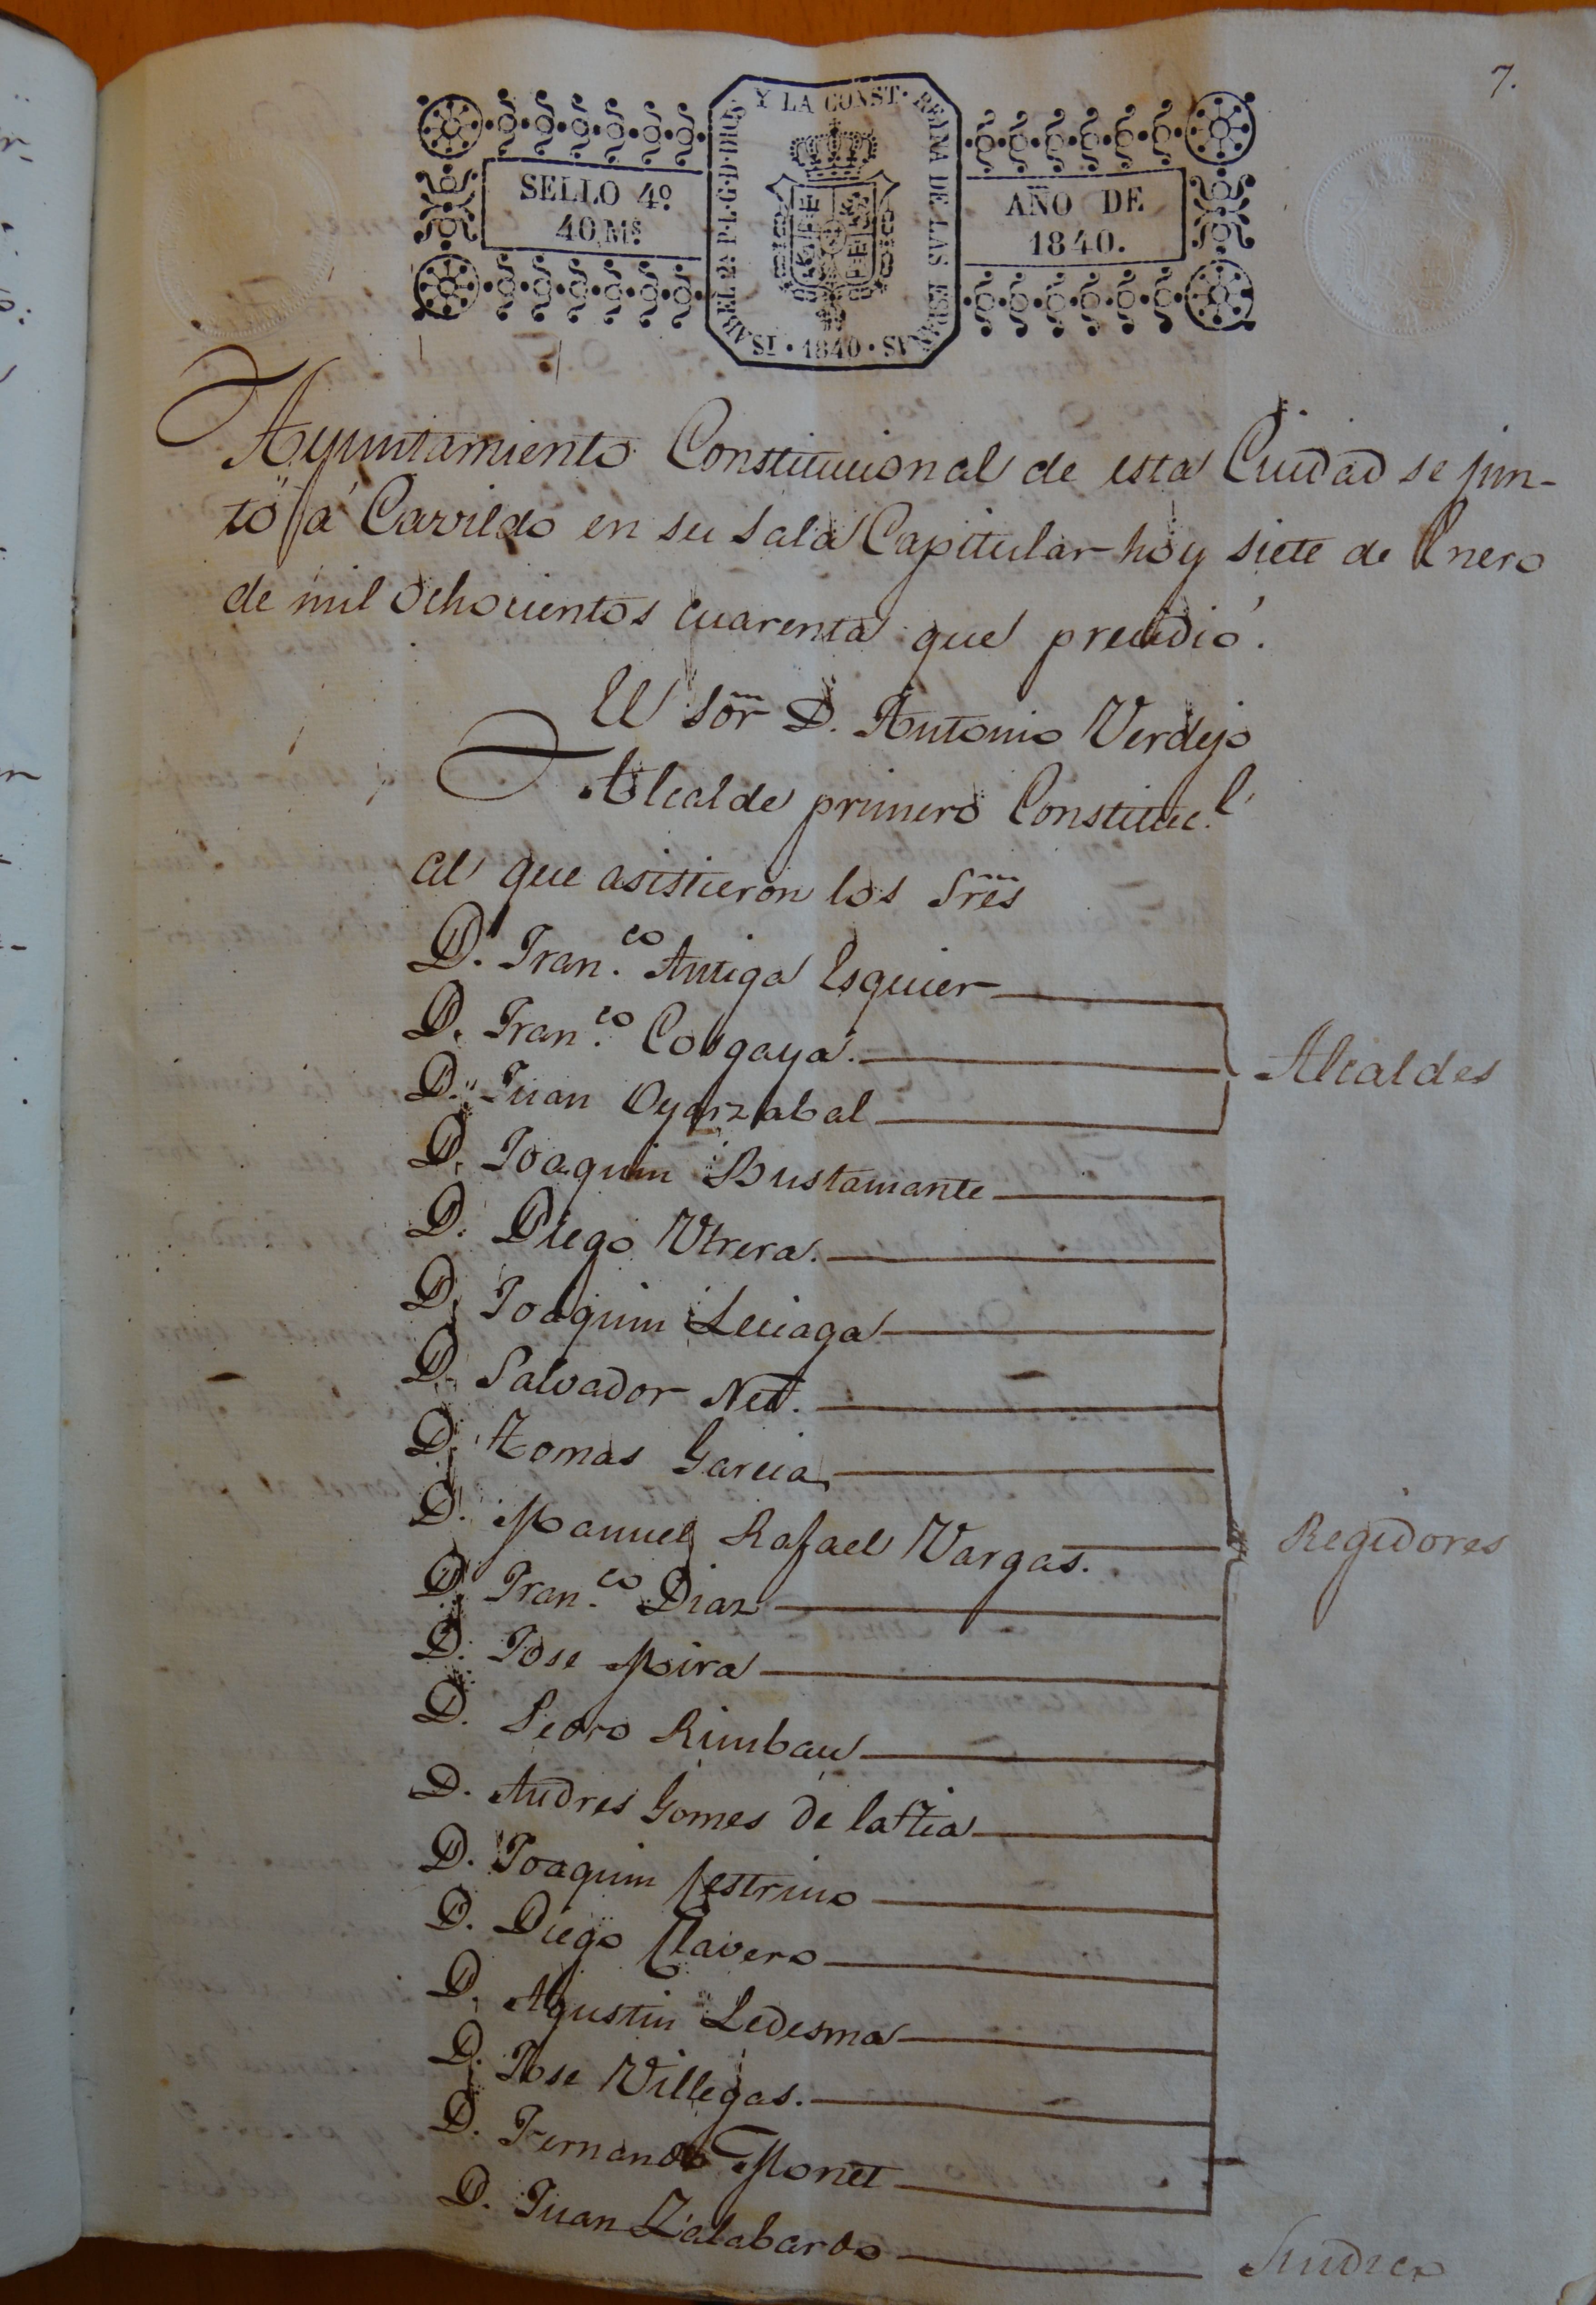 7.
SELLO 4º
40 Mˢ.
ISABEL 2ª P. L. G. D. DIOS Y LA CONST. REINA DE LAS ESPAÑAS
· 1840 ·
AÑO DE
1840.
Ayuntamiento Constitucional de esta Ciudad se jun-
tó á Cavildo en su Sala Capitular hoy siete de Enero
de mil ochocientos cuarenta que precidió.
El Sor D. Antonio Verdejo
Alcalde primero Constituc.l
al que asistieron los Sres
D. Fran.co Antiga Esquier
D. Fran.co Cosgaya.
D. Juan Oyarzabal
Alcaldes
D. Joaquin Bustamante
D. Diego Utrera.
D. Joaquin Leciaga
D. Salvador
D. Tomas Garcia
D. Manuel Rafael Vargas.
Regidores
D. Fran.co Diaz
D. Jose Mira
D. Pedro Rimbau
D. Andres Gomes de la Tia
D. Joaquin Cestrino
D. Diego Clavero
D. Agustin Ledesma
D. Jose Villegas.
D. Fernando Monet
D. Juan Zalabardo
Sindico